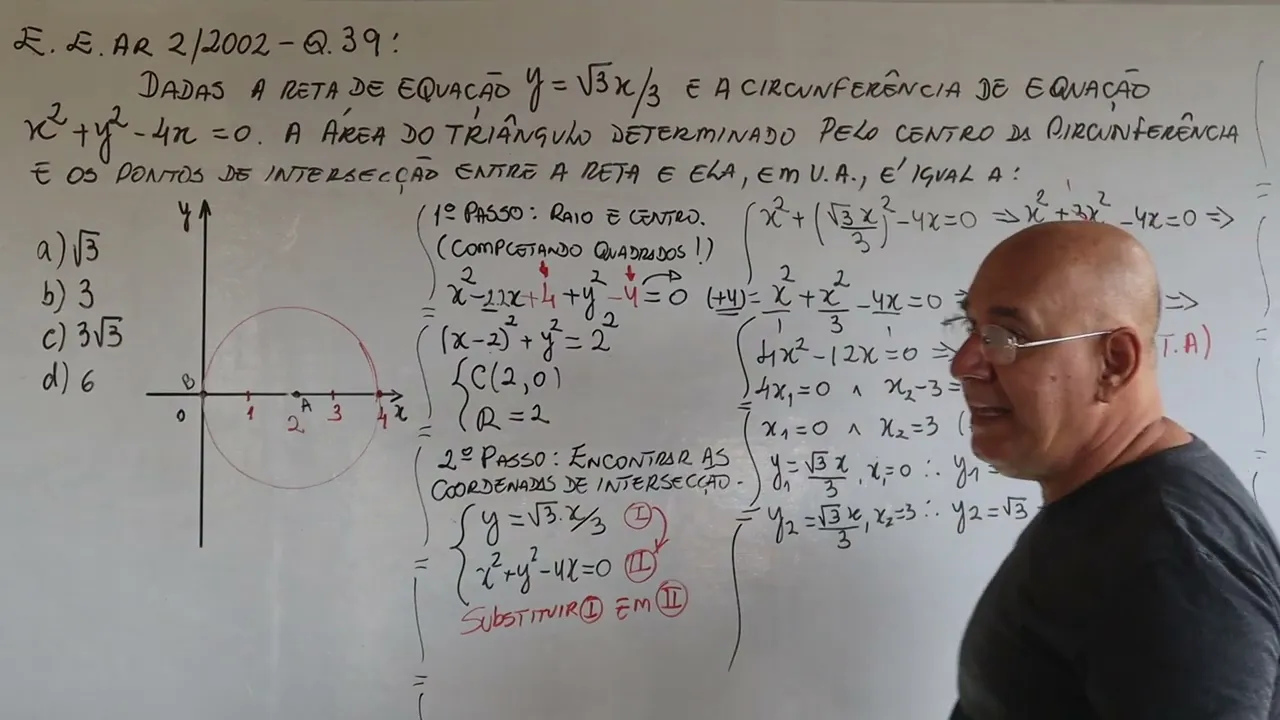 E. E. AR 2/2002 - Q. 39:
DADAS A RETA DE EQUAÇÃO y = √3x/3 E A CIRCUNFERÊNCIA DE EQUAÇÃO
x² + y² - 4x = 0. A ÁREA DO TRIÂNGULO DETERMINADO PELO CENTRO DA CIRCUNFERÊNCIA
E OS PONTOS DE INTERSECÇÃO ENTRE A RETA E ELA, EM U.A., É IGUAL A:
a) √3
b) 3
c) 3√3
d) 6
y
B
0
1
2
A
3
4
x
1º PASSO: RAIO E CENTRO.
(COMPLETANDO QUADRADOS!)
x² - 2.2x + 4 + y² - 4 = 0 (+4)
(x - 2)² + y² = 2²
C(2, 0)
R = 2
2º PASSO: ENCONTRAR AS
COORDENADAS DE INTERSECÇÃO.
y = √3.x/3 (I)
x² + y² - 4x = 0 (II)
SUBSTITUIR (I) EM (II)
x² + (√3x/3)² - 4x = 0 ⇒ x² + 3x² - 4x = 0 ⇒
x²/1 + x²/3 - 4x/1 = 0 ⇒
T.A)
4x² - 12x = 0 ⇒
4x₁ = 0 ∧ x₂ - 3 =
x₁ = 0 ∧ x₂ = 3
y₁ = √3x/3, x₁ = 0 ∴ y₁ =
y₂ = √3x/3, x₂ = 3 ∴ y₂ = √3